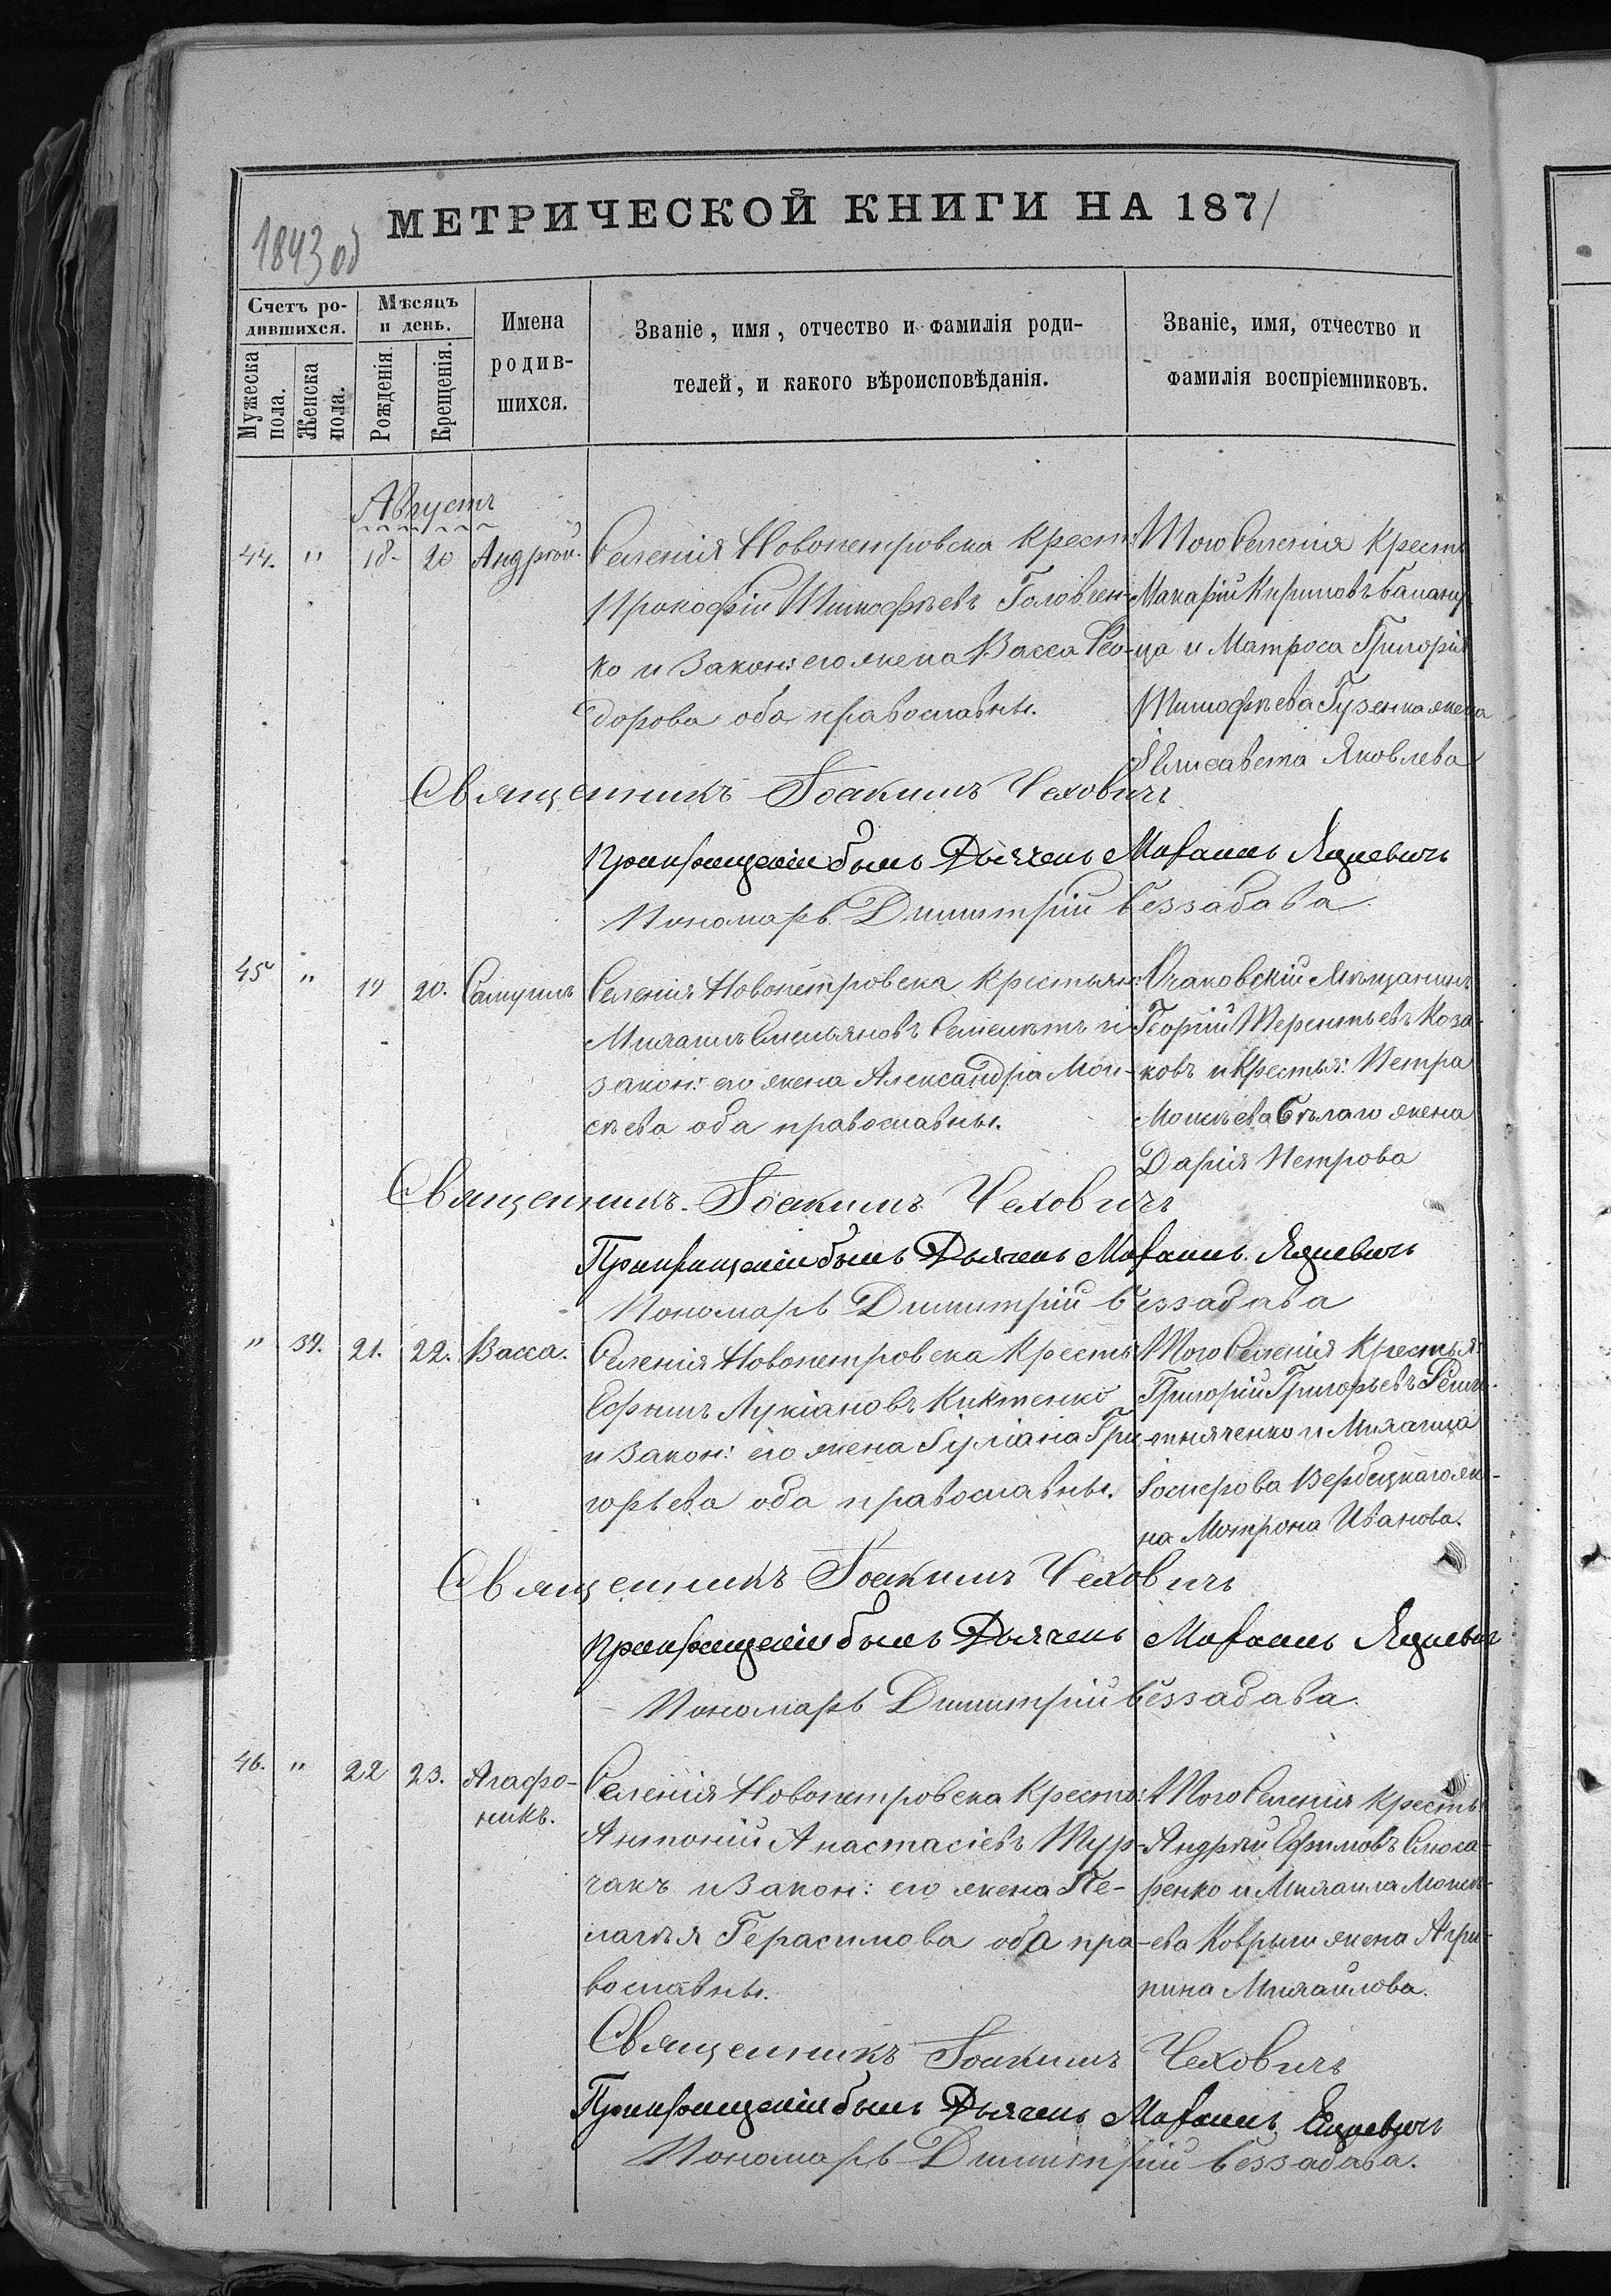 МЕТРИЧЕСКОЙ КНИГИ НА 1871
1843 об
Счетъ ро-
дившихся.
Мужеска
пола.
Женска
пола.
Мѣсяцъ
и день.
Рожденія.
Крещенія.
Имена
родив-
шихся.
Званіе, имя, отчество и фамилія роди-
телей, и какого вѣроисповѣданія.
Званіе, имя, отчество и
фамилія воспріемниковъ.
Августъ
44. " 18. 20 Андрей.
Селенія Новопетровска Крест:
Прокофій Тимофѣевъ Головчен-
ко и Закон: его жена Васса Ѳео-
дорова оба православны.
Того Селенія Кресть
Макарій Кириловъ
ца и Матроса Григорія
Тимофѣева Гузенка жена
Елисавета Яковлева
Священникъ Іоакимъ Чеховичъ
При крещеніи былъ Дьячекъ Михаилъ Яцкевичъ
Пономарь Димитрій Беззабава
45 " 19 20. Самуилъ
Селенія Новопетровска Крестьян:
Михаилъ Емельяновъ и
закон: его жена Александра Мои-
сѣева оба православны.
Очаковскій Мѣщанинъ
Георгій Терентьевъ Коза-
ковъ и Крестья: Петра
Моисѣева Бѣлаго жена
Дарія Петрова
Священникъ Іоакимъ Чеховичъ
При крещеніи былъ Дьячекъ Михаилъ Яцкевичъ
Пономарь Димитрій Беззабава
" 39. 21. 22. Васса.
Селенія Новопетровска Кресть:
Ефимъ Лукіановъ Киктенко
и Закон: его жена Іуліана Гри-
горьева оба православны.
Того Селенія Крестья:
Григорій Григорьевъ Реше-
тняченко и Михаила
Іосифова Вербицкаго же-
на Матрона Иванова.
Священникъ Іоакимъ Чеховичъ
При крещеніи былъ Дьячекъ Михаилъ Яцкевичъ
Пономарь Димитрій Беззабава.
46. " 22 23. Агафо-
никъ.
Селенія Новопетровска Кресть:
Антоній Анастасіевъ Тур-
чакъ и Закон: его жена Пе-
лагѣя Герасимова оба пра-
вославны.
Того Селенія Кресть
Андрей Ефимовъ Слюса-
ренко и Михаила Моисѣ-
ева Коврыги жена Агри-
пина Михайлова.
Священникъ Іоакимъ Чеховичъ
При крещеніи былъ Дьячекъ Михаилъ Яцкевичъ
Пономарь Димитрій Беззабава.